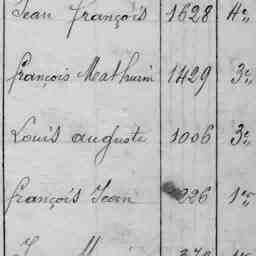 Jean françois 1628 4e
françois Mathurin 1429 3e
Louis auguste 1006 3e
françois Jean 226 1er